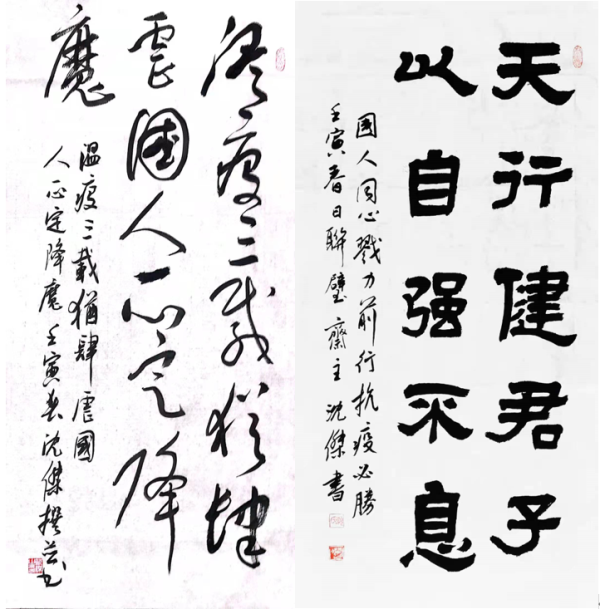 天行健君子
以自强不息
國人同心戮力前行抗疫必勝
壬寅春日聯璧齋主沈傑書
温疫三载犹肆
虐國人一心定降
魔
温疫三載猶肆虐國
人一心定降魔壬寅春沈傑撰并书